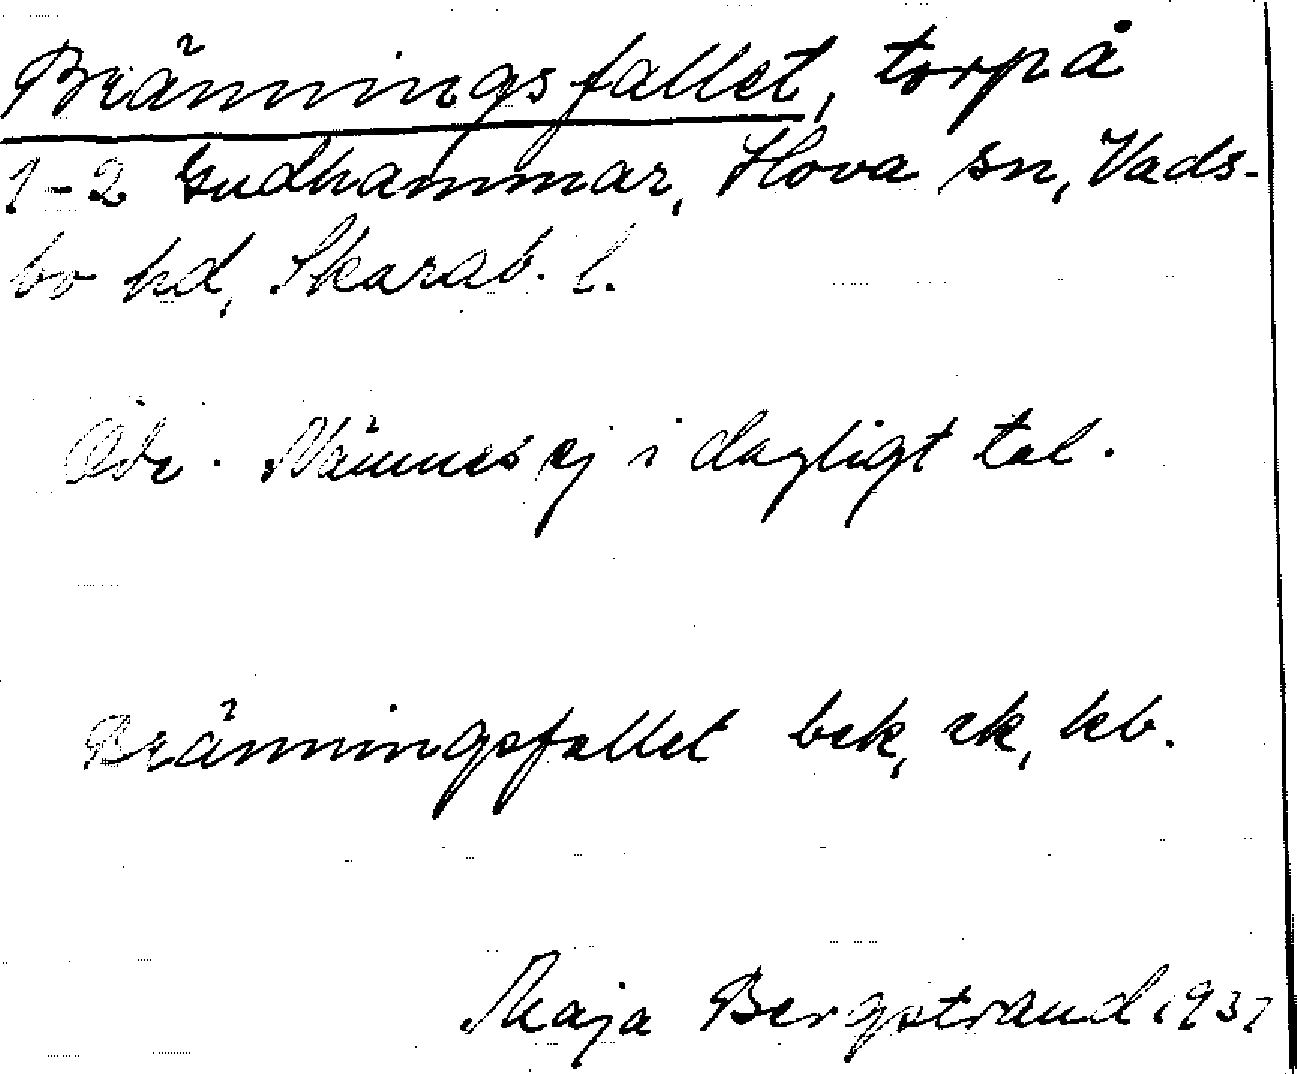 Bränningsfallet, torp å
1-2 Gudhammar, Hova sn, Vads-
bo hd, Skarab. l.
Öde. Nämnes ej i dagligt tal.
Bränningsfallet bek, ek, kb.
Maja Bergstrand 1937